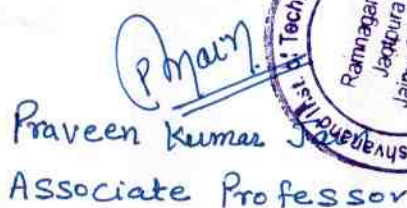 P Jain.
Praveen Kumar Jain
Associate Professor
Inst. of Tech
Ramnagar
Jagatpura